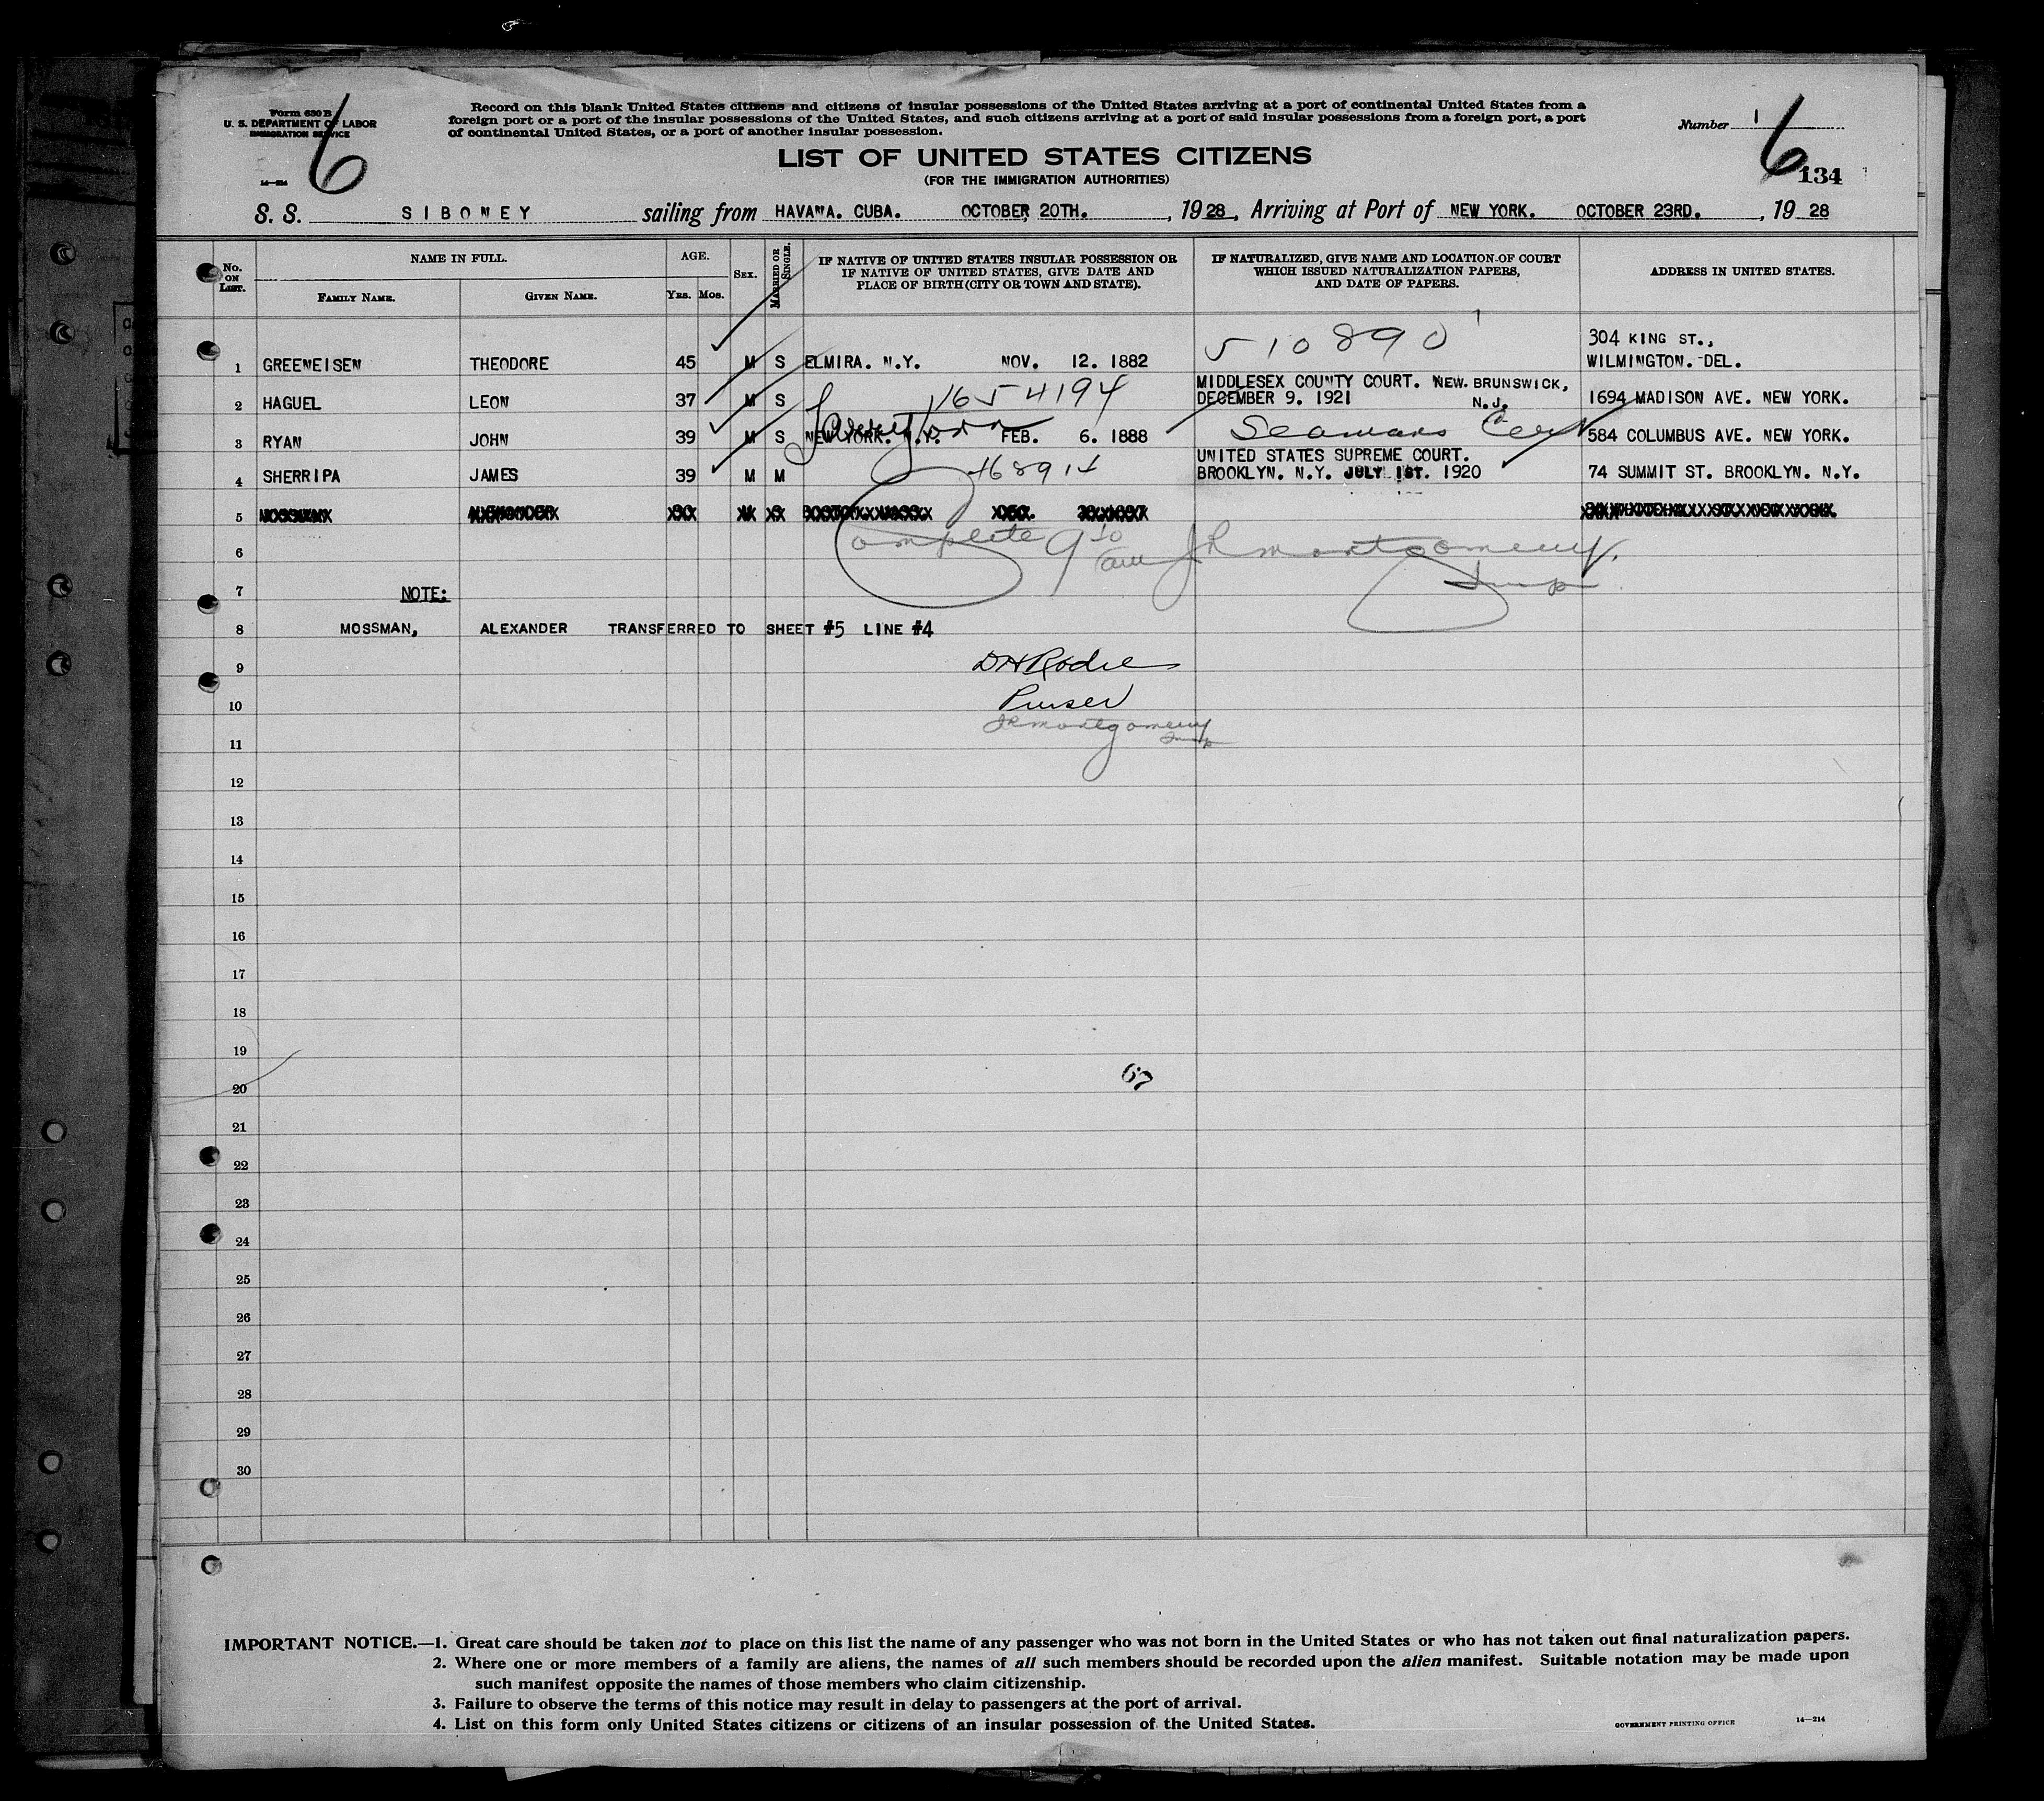 Form 630 B
U. S. DEPARTMENT OF LABOR
IMMIGRATION SERVICE
14—214
6
Record on this blank United States citizens and citizens of insular possessions of the United States arriving at a port of continental United States from a
foreign port or a port of the insular possessions of the United States, and such citizens arriving at a port of said insular possessions from a foreign port, a port
of continental United States, or a port of another insular possession.
Number 1
6
134
LIST OF UNITED STATES CITIZENS
(FOR THE IMMIGRATION AUTHORITIES)
S. S. SIBONEY sailing from HAVANA. CUBA. OCTOBER 20TH. , 1928, Arriving at Port of NEW YORK. OCTOBER 23RD. , 1928
No. ON LIST. NAME IN FULL. FAMILY NAME. GIVEN NAME. AGE. YRS. MOS. SEX. MARRIED OR SINGLE. IF NATIVE OF UNITED STATES INSULAR POSSESSION OR IF NATIVE OF UNITED STATES, GIVE DATE AND PLACE OF BIRTH (CITY OR TOWN AND STATE). IF NATURALIZED, GIVE NAME AND LOCATION OF COURT WHICH ISSUED NATURALIZATION PAPERS, AND DATE OF PAPERS. ADDRESS IN UNITED STATES.
1 GREENEISEN THEODORE 45 M S ELMIRA. N.Y. NOV. 12. 1882 510890 304 KING ST., WILMINGTON. DEL.
2 HAGUEL LEON 37 M S 1654194 MIDDLESEX COUNTY COURT. NEW. BRUNSWICK, N.J. DECEMBER 9. 1921 1694 MADISON AVE. NEW YORK.
3 RYAN JOHN 39 M S NEW YORK. N.Y. FEB. 6. 1888 Seamans Cert 584 COLUMBUS AVE. NEW YORK.
4 SHERRIPA JAMES 39 M M 468914 UNITED STATES SUPREME COURT. BROOKLYN. N.Y. JULY 1ST. 1920 74 SUMMIT ST. BROOKLYN. N.Y.
5
6 Complete 9 10 am JR Montgomery Insp
7 NOTE:
8 MOSSMAN, ALEXANDER TRANSFERRED TO SHEET #5 LINE #4
9 DH Rodie
10 Purser
JR Montgomery
11 Insp
12
13
14
15
16
17
18
19
20 67
21
22
23
24
25
26
27
28
29
30
IMPORTANT NOTICE.—1. Great care should be taken not to place on this list the name of any passenger who was not born in the United States or who has not taken out final naturalization papers.
2. Where one or more members of a family are aliens, the names of all such members should be recorded upon the alien manifest. Suitable notation may be made upon
such manifest opposite the names of those members who claim citizenship.
3. Failure to observe the terms of this notice may result in delay to passengers at the port of arrival.
4. List on this form only United States citizens or citizens of an insular possession of the United States.
GOVERNMENT PRINTING OFFICE 14—214